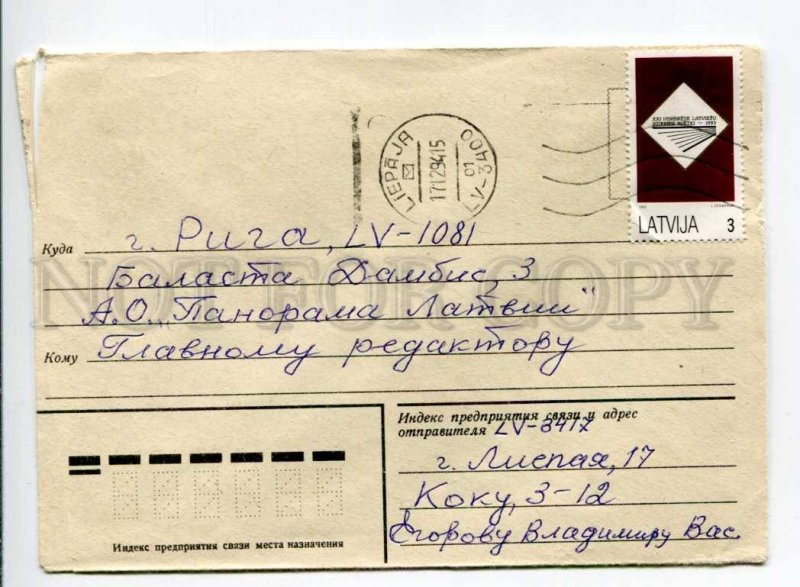 LIEPĀJA
17.12.94.15
LV-3400
01
XXI VISPĀRĒJIE LATVIEŠU
DZIESMU SVĒTKI — 1993
LATVIJA 3
Куда г. Рига, LV-1081
Баласта Дамбис, 3
А.О. „Панорама Латвии"
Кому Главному редактору
NOT FOR COPY
Индекс предприятия связи и адрес
отправителя LV-3417
г. Лиепая, 17
Коку, 3-12
Егорову Владимиру Вас.
Индекс предприятия связи места назначения